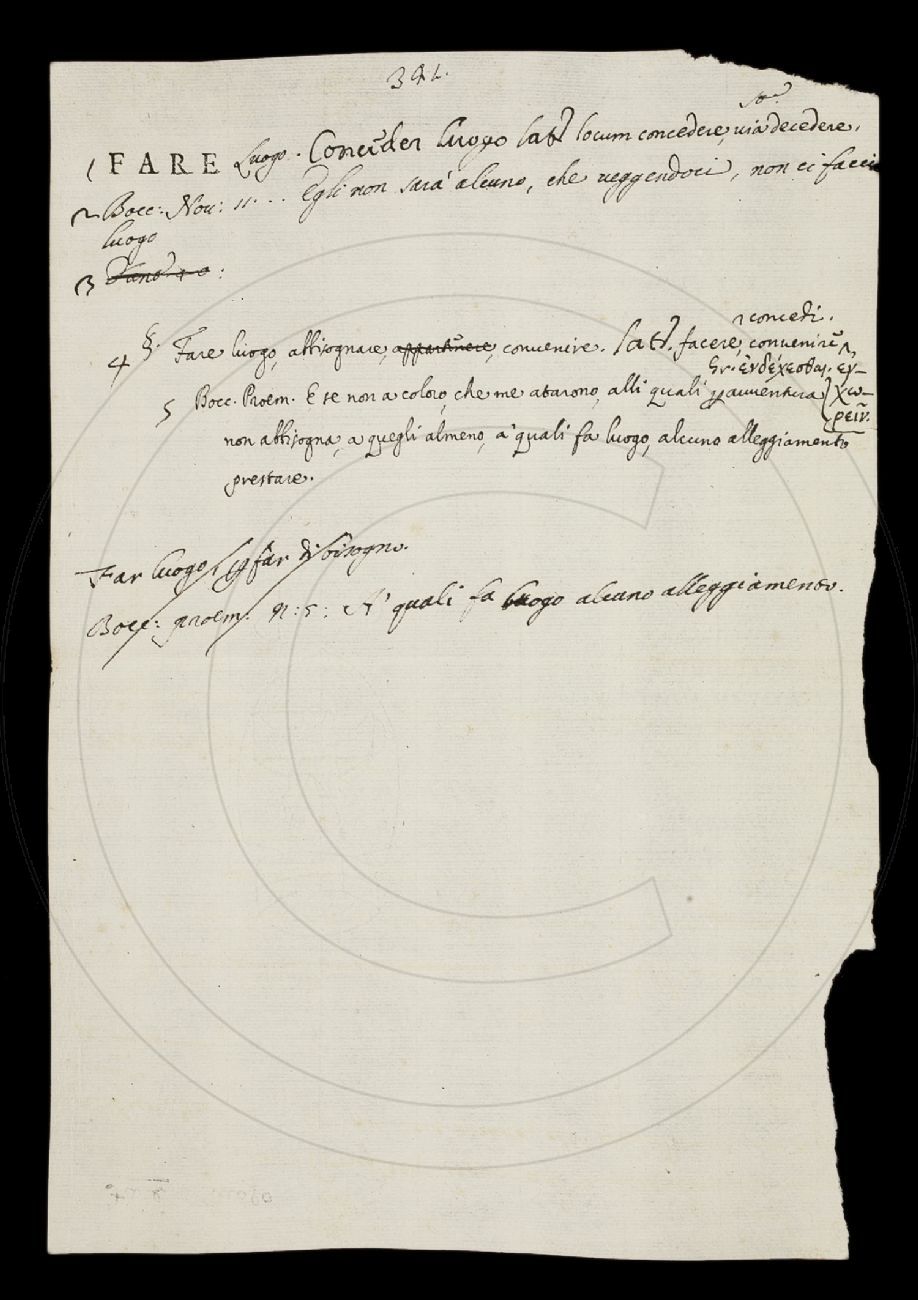 341.
1 FARE Luogo. Conceder luogo lat. locum concedere, via decedere.
2 Bocc: Nov: 11. .. Egli non sara' alcuno, che veggendoci, non ci faccia
luogo
3
concedi.
4 §. Fare luogo, abbisognare, appartenere, convenire. lat. facere, convenire,
Gr. ἐνδέχεσθαι. ἐγ-
5 Bocc. Proem. E se non a coloro, che me atarono, alli quali p avventura χω-
ρεῖν.
non abbisogna, a quegli almeno, a' quali fa luogo, alcuno alleggiamento
prestare.
Far luogo far di bisogno.
Bocc: proem: n: 5: A' quali fa luogo alcuno alleggiamento.